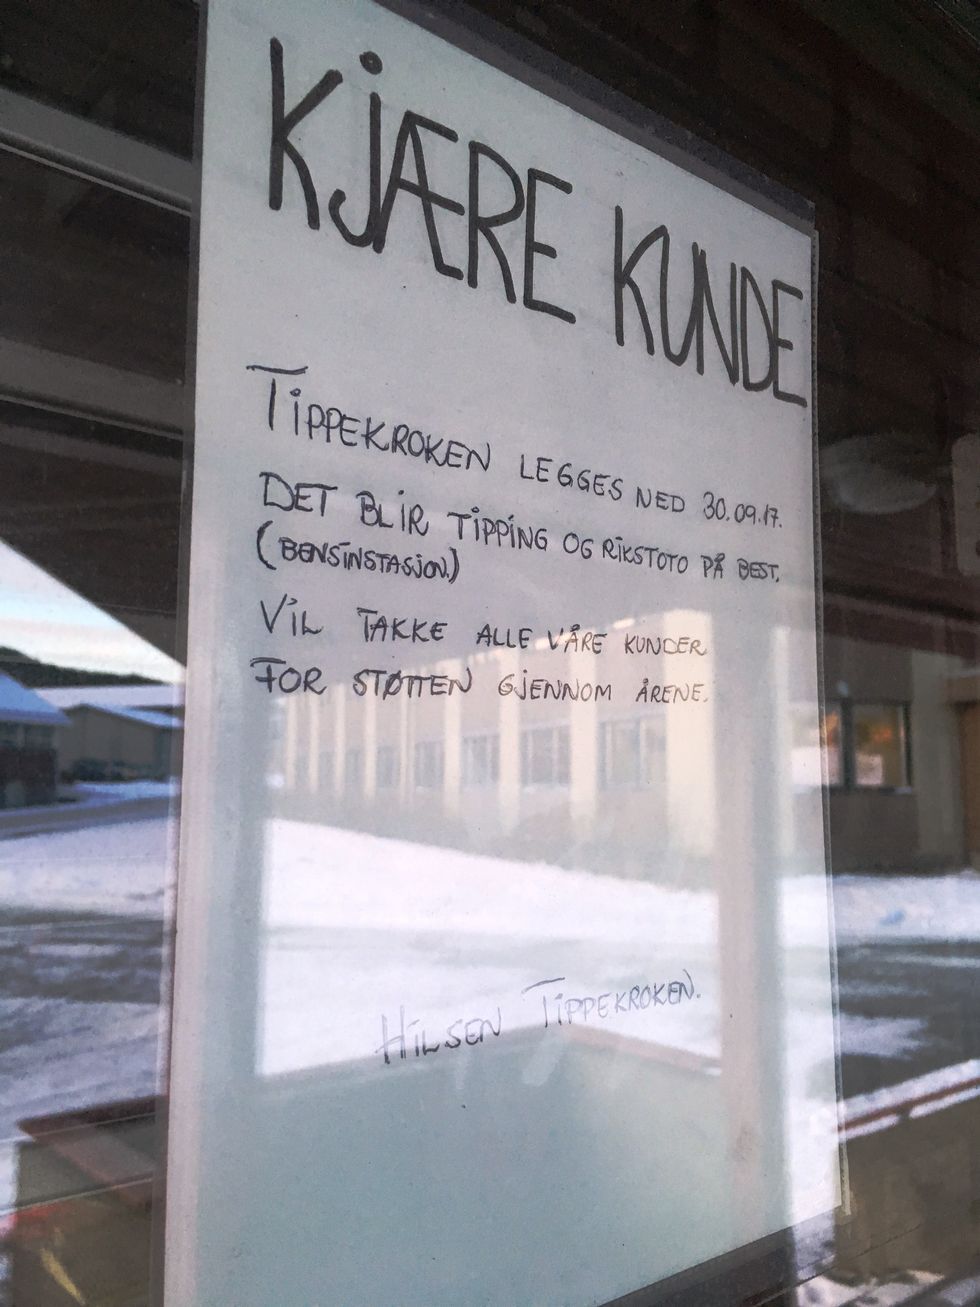 KJÆRE KUNDE
TIPPEKROKEN LEGGES NED 30.09.17.
DET BLIR TIPPING OG RIKSTOTO PÅ BEST.
(BENSINSTASJON.)
VIL TAKKE ALLE VÅRE KUNDER
FOR STØTTEN GJENNOM ÅRENE.
HILSEN TIPPEKROKEN.